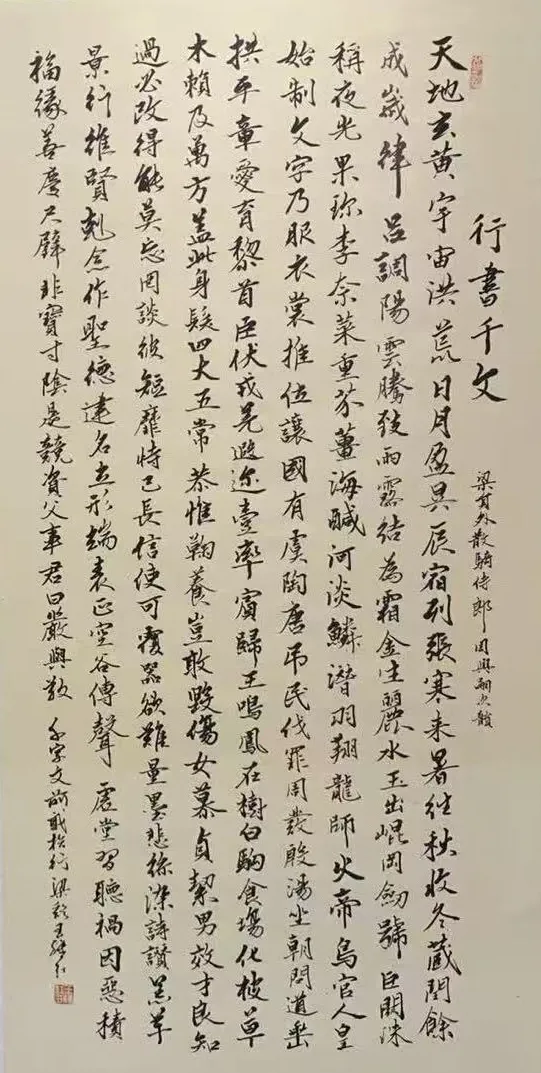 行書千文
梁員外散騎侍郎周興嗣次韻
天地玄黃宇宙洪荒日月盈昃辰宿列張寒来暑往秋收冬藏閏餘
成歲律呂調陽雲騰致雨露結為霜金生麗水玉出崐岡劍號巨闕珠
稱夜光果珍李奈菜重芥薑海鹹河淡鱗潛羽翔龍師火帝鳥官人皇
始制文字乃服衣裳推位讓國有虞陶唐吊民伐罪周發殷湯坐朝問道垂
拱平章愛育黎首臣伏戎羌遐迩壹率賓歸王鳴鳳在樹白駒食場化被草
木賴及萬方蓋此身髮四大五常恭惟鞠養豈敢毀傷女慕貞絜男效才良知
過必改得能莫忘罔談彼短靡恃己長信使可覆器欲難量墨悲絲染詩讚羔羊
景行維賢剋念作聖德建名立形端表正空谷傳聲虛堂習聽禍因惡積
福緣善慶尺璧非寶寸陰是競資父事君曰嚴與敬 千字文